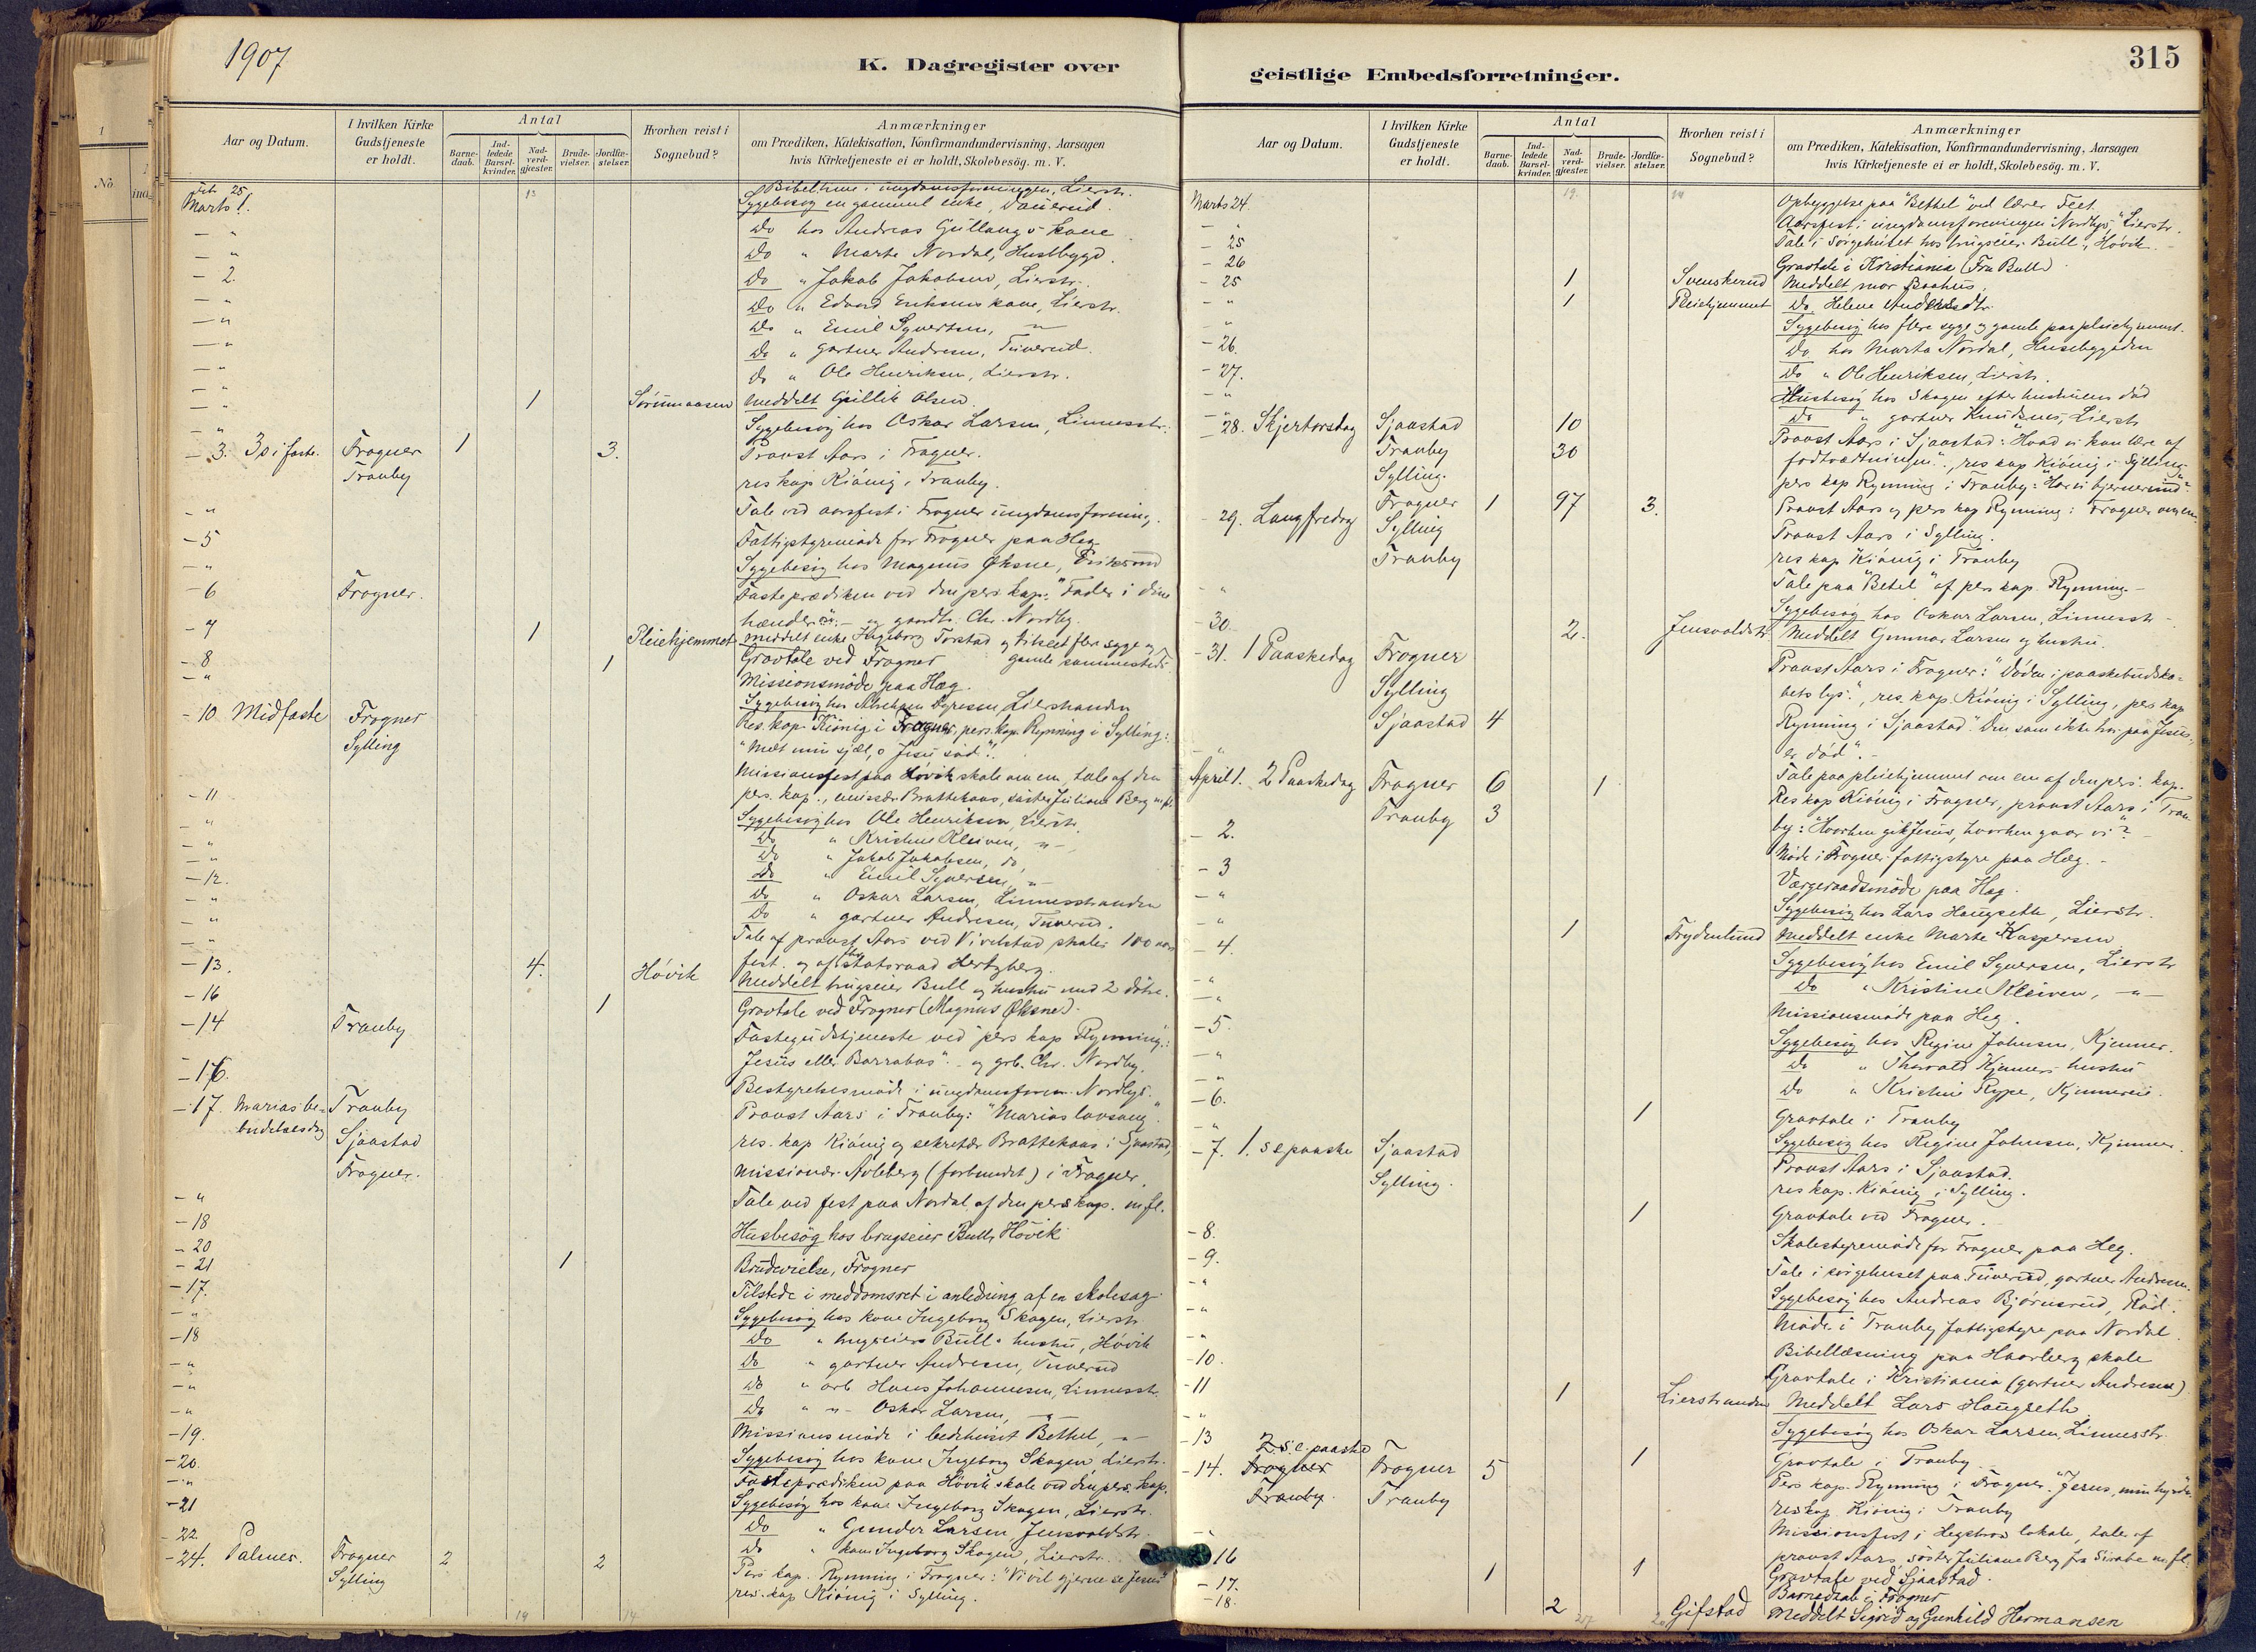 1907
K. Dagregister over
geistlige Embedsforretninger.
315
Aar og Datum.
I hvilken Kirke Gudstjeneste er holdt.
Antal
Barne-daab.
Ind-ledede Barsel-kvinder.
Nad-verd-gjæster.
Brude-vielser.
Jordfæ-stelser.
Hvorhen reist i Sognebud?
Anmærkninger
om Prædiken, Katekisation, Konfirmandundervisning, Aarsagen
hvis Kirketjeneste ei er holdt, Skolebesög. m. V.
Feb. 25 Bibeltime i ungdomsforeningen, Lierstr.
Marts 1. Sygebesøg en gammel enke, Tuverud.
— " Do hos Andreas Gullaugs kone
— " Do " Marte Nordal, Husebygd.
— 2. Do " Jakob Jakobsen, Lierstr.
— " Do " Edvard Eriksens kone, Lierstr.
— " Do " Emil Syvertsen, — " —
— " Do " gartner Andresen, Tuverud.
— " Do " Ole Henriksen, Lierstr.
— " 1 Sørumaasen Meddelt Gullik Olsen
— " Sygebesøg hos Oskar Larsen, Linnesstr.
— 3. 3 s i faste. Frogner 1 3. Provst Aars i Frogner.
Tranby res kap Kiønig i Tranby.
— " Tale ved aarsfest i Frogner ungdomsforening.
— 5 Fattigstyremøde for Frogner paa Heg
— " Sygebesøg hos Magnus Øksne, Eriksrud
— 6 Frogner. Fasteprædiken ved den pers. kap. "Fader i dine
hænder" — og gaardbr. Chr. Nordby.
— 7 1 Pleiehjemmet meddelt enke Ingeborg Torstad og tilseet flere syge og
— 8 1 Gravtale ved Frogner gamle sammesteds.
— " Missionsmøde paa Hæg.
Sygebesøg hos Abraham Dyresen Lierstranden
— 10 Midfaste Frogner Res. kap. Kiønig i Frogner, pers. kap. Rynning i Sylling:
Sylling "Mæt min sjæl, o Jesu sød".
Missionsfest paa Høvik skole om em, tale af den
— 11 pers. kap., emissær Brattekaas, søster Juliane Berg m. fl.
— " Sygebesøg hos Ole Henriksen, Lierstr.
— " Do " Kristine Kleiven, — " —
— " Do " Jakob Jakobsen, do
— 12. Do " Emil Syversen, — " —
— " Do " Oskar Larsen, Linnesstranden
— " Do " gartner Andresen, Tuverud.
— " Tale af provst Aars ved Vivelstad skoles 100 aars
— 13. 4. Høvik fest og af statsraad Hertzberg.
Meddelt brugseier Bull og hustru med 2 døtre.
— 16 1 Gravtale ved Frogner (Magnus Øksne).
— 14 Tranby Fastegudstjeneste ved pers kap Rynning:
Jesus eller Barrabas" — og grb. Chr. Nordby.
— 16. Bestyrelsesmøde i ungdomsforen. Nordlys.
— 17. Marias be- Tranby Provst Aars i Tranby: "Marias lovsang".
budelsesdag Sjaastad res. kap Kiønig og sekretær Brattekaas i Sjaastad,
Frogner. Missionær Avleberg (forbundet) i Frogner.
— " Tale ved fest paa Nordal af den pers kap. m fl.
— 18 Husbesøg hos brugseier Bull, Høvik
— 20
— 21 1 Brudevielse, Frogner
— 17. Tilstede i meddomsret i anledning af en skolesag
— " Sygebesøg hos kone Ingeborg Skogen, Lierstr.
— 18 Do " brugseier Bulls hustru, Høvik
— " Do " gartner Andresen, Tuverud
— " Do " arb. Hans Johannesen, Linnesstr.
— " Do " — " — Oskar Larsen, — " —
— 19. Missionsmøde i bedehuset Bethel, — " —
— 20. Sygebesøg hos kone Ingeborg Skogen Lierstr.
— " Fasteprædiken paa Høvik skole ved den pers. kap.
— 21 Sygebesøg hos kone Ingeborg Skogen, Lierstr.
— 22 Do " Gunder Larsen, Jensvoldstr.
Do " kone Ingeborg Skogen, Lierstr.
— 24. Palmes. Frogner 2 2 Pers kap. Rynning i Frogner: "Vi vil gjerne se Jesus"
Sylling res. kap Kiønig i Sylling.
19 14
Aar og Datum.
I hvilken Kirke Gudstjeneste er holdt.
Antal
Barne-daab.
Ind-ledede Barsel-kvinder.
Nad-verd-gjæster.
Brude-vielser.
Jordfæ-stelser.
Hvorhen reist i Sognebud?
Anmærkninger
om Prædiken, Katekisation, Konfirmandundervisning, Aarsagen
hvis Kirketjeneste ei er holdt, Skolebesög. m. V.
Marts 24. Opbyggelse paa "Bethel" ved lærer Feet.
— " Aarsfest i ungdomsforeningen "Nordlys", Lierstr.
— 25 Tale i Sørgehuset hos brugseier Bull, Høvik.
— 26 Gravtale i Kristiania (Fru Bull)
— 25 1 Svenskerud Meddelt mor Baahus
— " 1 Pleiehjemmet Do. Helene Andersdtr.
— " Sygebesøg hos flere syge og gamle paa pleiehjemmet.
— 26. Do hos Marta Nordal, Husebygden
— 27. Do " Ole Henriksen, Lierstr.
— " Husbesøg hos Skogen efter hustruens død
— " Do " gartner Knudsen, Lierstr
— 28. Skjertorsdag Sjaastad 10 Provst Aars i Sjaastad: "Hvad vi kan lære af
Tranby 30 fodtvædtningen", res kap Kiønig i Sylling
Sylling. pers kap Rynning i Tranby: "Har vi hjerterum?"
— 29. Langfredag Frogner 1 97 3. Provst Aars og pers kap Rynning i Frogner
Sylling Provst Aars i Sylling.
Tranby res kap Kiønig i Tranby
— " Tale paa "Betel" af pers kap. Rynning. —
Sygebesøg hos Oskar Larsen, Linnesstr —
— 30. 2. Jensvoldstr. Meddelt Gunnar Larsen og hustru.
— 31. 1 Paaskedag Frogner Provst Aars i Frogner: "Døden i paaskebudska-
Sylling bets lys", res. kap. Kiønig i Sylling, pers kap
Sjaastad 4 Rynning i Sjaastad: "Den som ikke tror paa Jesus,
er død". —
— " Tale paa pleiehjemmet om em af den pers. kap.
April 1. 2 Paaskedag Frogner 6 1 Res kap Kiønig i Frogner, provst Aars i Tran-
Tranby 3 by: "Hvorhen gik Jesus, hvorhen gaar vi"? —
— 2. Møde i Frogner fattigstyre paa Hæg. —
— 3 Værgeraadsmøde paa Hæg.
— " Sygebesøg hos Lars Haugseth, Lierstr.
— " 1 Frydenlund Meddelt enke Marte Kaspersen
— 4. Sygebesøg hos Emil Syversen, Lierstr
— " Do " Kristine Kleiven, — " —
— " Missionsmøde paa Heg.
— 5. Sygebesøg hos Regine Johnsen, Kjenner.
— " Do " Thorvald Kjenners hustru
— " Do " Kristine Rype, Kjennereie.
— 6. 1 Gravtale i Tranby
— " Sygebesøg hos Regine Johnsen, Kjenner.
— 7. 1. s e paaske Sjaastad Provst Aars i Sjaastad.
Sylling. res kap. Kiønig i Sylling.
1 Gravtale ved Frogner.
— 8. Skolestyremøde for Frogner paa Heg.
— 9. Tale i sørgehuset paa Tuverud, gartner Andresen.
— " Sygebesøg hos Andreas Bjørnsrud, Rød.
— " Møde i Tranby fattigstyre paa Nordal.
— " Bibellæsning paa Haarberg skole
— 10. Gravtale i Kristiania (gartner Andresen)
— 11 1 Lierstranden Meddelt Lars Haugseth
— " Sygebesøg hos Oskar Larsen, Linnesstr.
— 13 1 Gravtale i Tranby.
2. s. e paaske
— 14. Frogner Frogner 5 Pers kap. Rynning i Frogner. "Jesus, min hyrde".
Tranby. Tranby res kap. Kiønig i Tranby
— " Missionsfest i Hegsbros lokale, tale af
provst Aars, søster Juliane Berg fra Sirabe m fl.
— 16 1 Gravtale ved Sjaastad.
— 17. 1 Barnedaab i Frogner
— 18. 2 Gifstad Meddelt Sigrid og Gunhild Hermansen